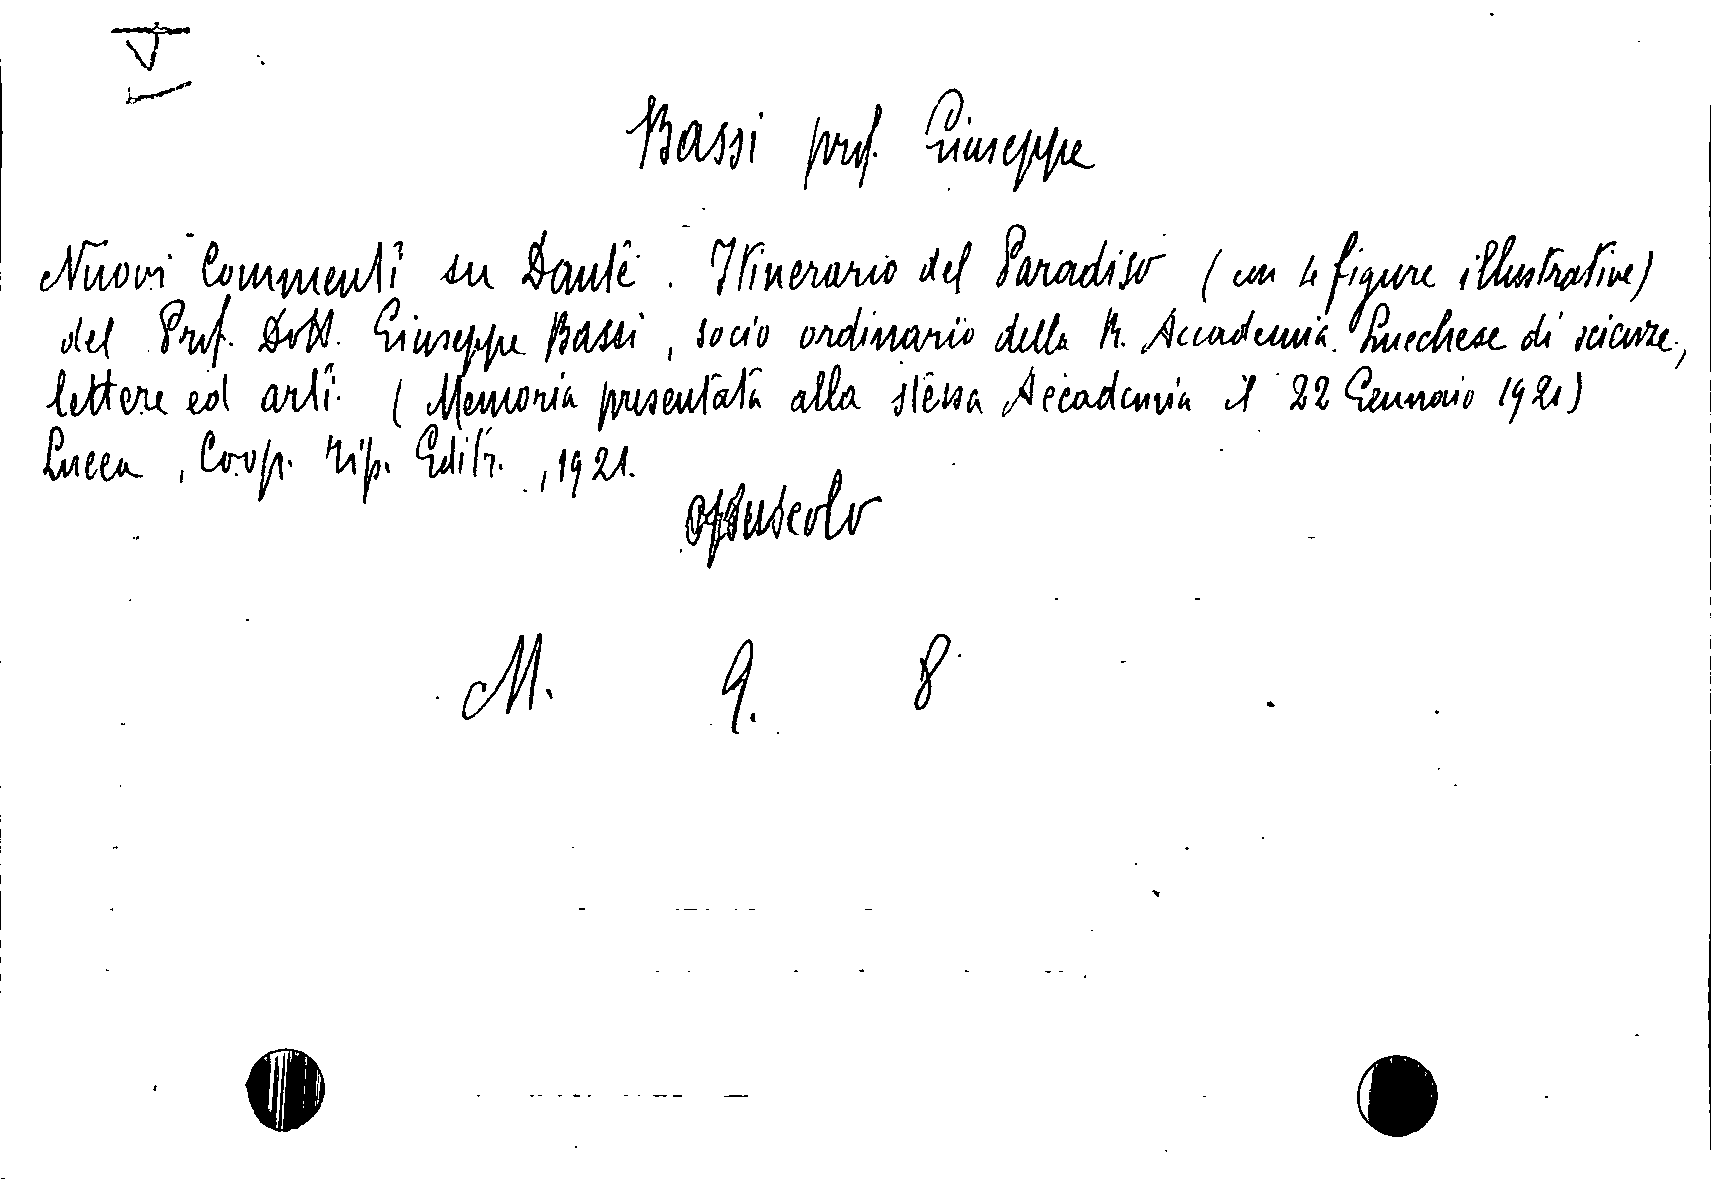 Bassi prof. Giuseppe
Nuovi Commenti su Dante. Itinerario del Paradiso (con 4 figure illustrative)
del Prof. Dott. Giuseppe Bassi, socio ordinario della R. Accademia Lucchese di scienze,
lettere ed arti. (Memoria presentata alla stessa Accademia il 22 Gennaio 1921)
Lucca, Coop. Tip. Editr., 1921.
opuscolo
M. 9. 8